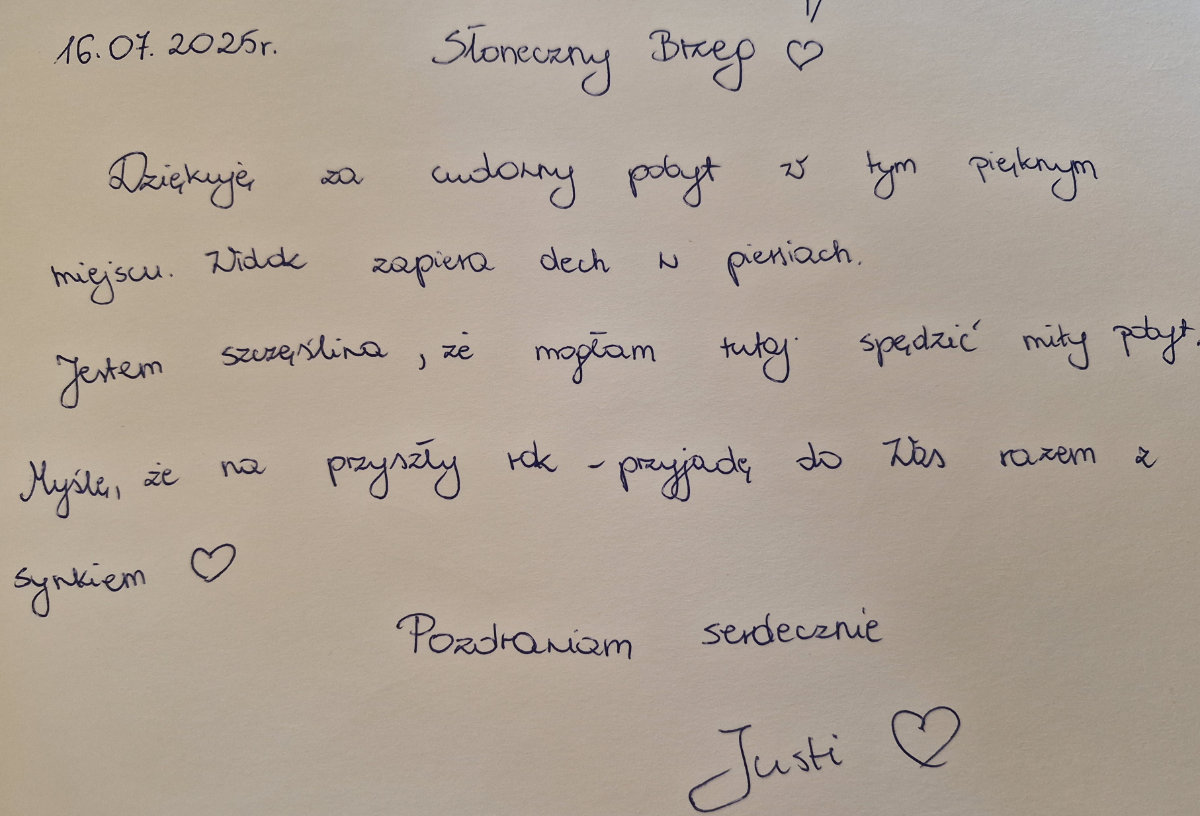 16.07.2025r. Słoneczny Brzeg ♡
Dziękuję za cudowny pobyt w tym pięknym
miejscu. Widok zapiera dech w piersiach.
Jestem szczęśliwa, że mogłam tutaj spędzić miły pobyt.
Myślę, że na przyszły rok - przyjadę do Was razem z
synkiem ♡
Pozdrawiam serdecznie
Justi ♡